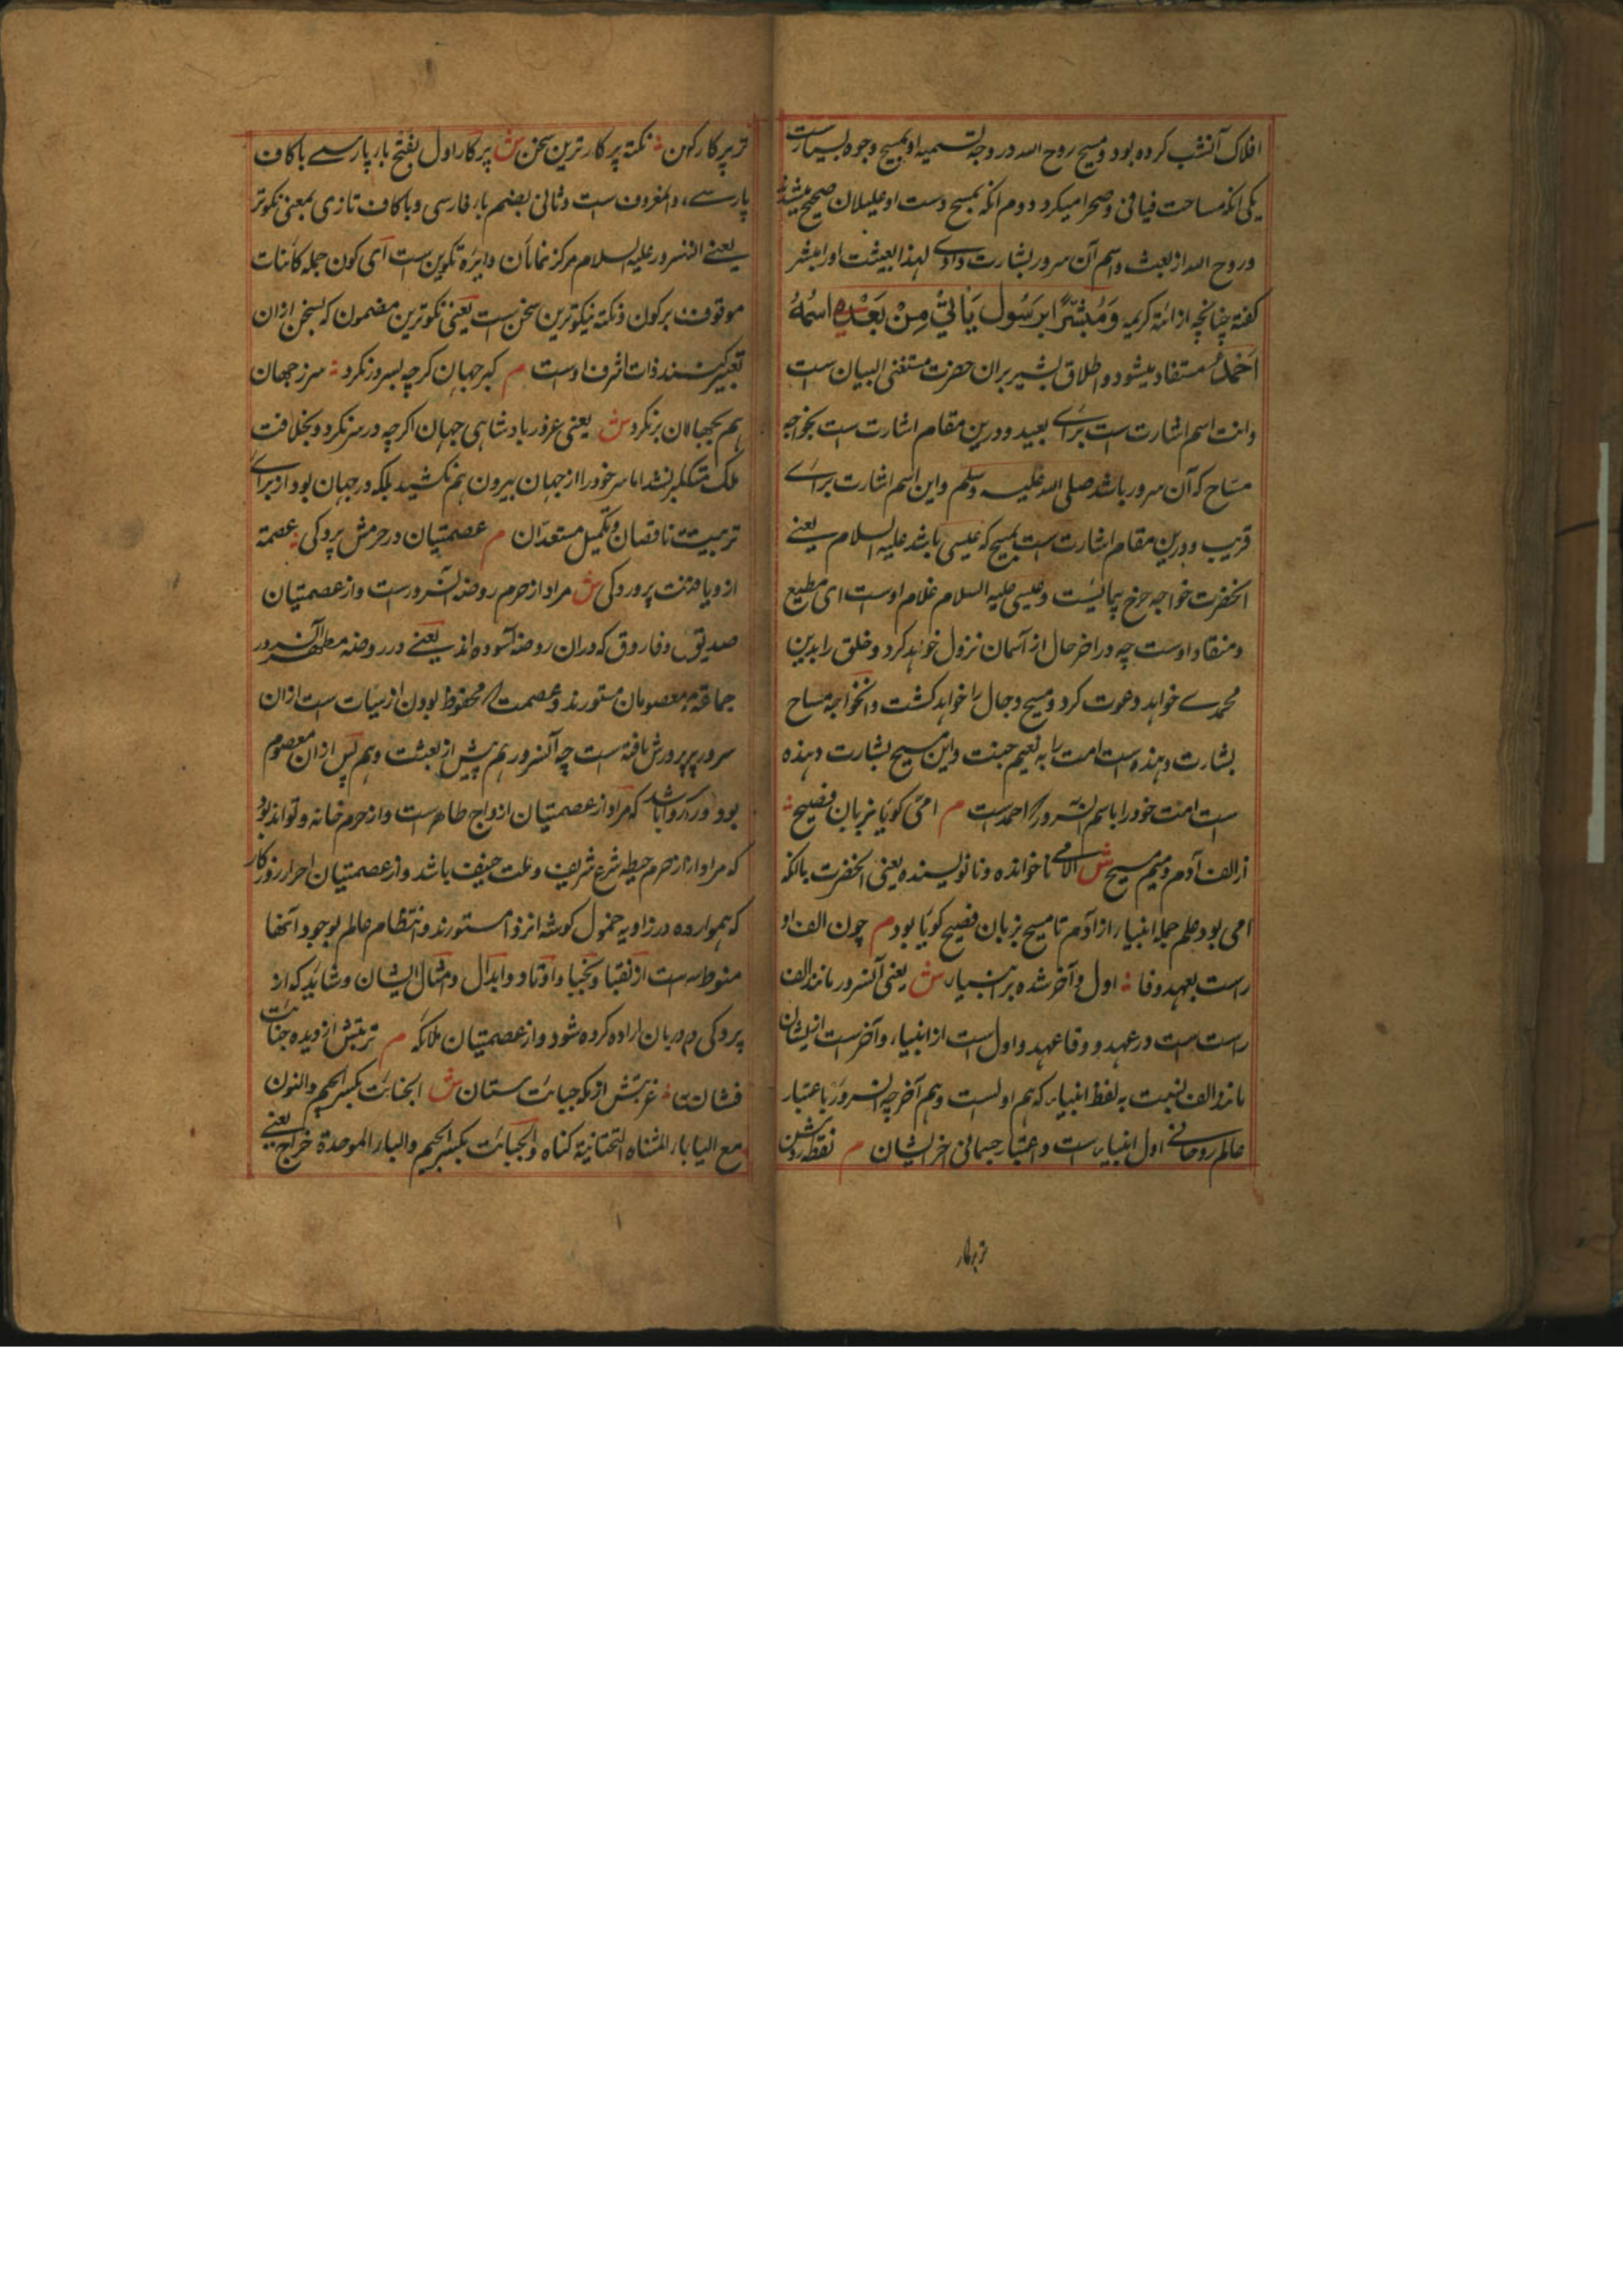 افلاک آنشب کرده بود و مسیح روح الله در وجه تسمیه او بمسیح وجوه بسیارست
یکی انکه مساحت فیافی و صحرا میکرد دوم انکه بمسح دست او علیلان صحیح میشدند
و روح الله از بعث و اسم آن سرور بشارت دادی لهذا لبعیثت اورا مبشر
کفته چنانچه از ائه کریمه وَمُبَشِّرًا بِرَسُولٍ يَأْتِي مِنْ بَعْدِهِ اسْمُهُ
اَحْمَدُ مستفاد میشود و اطلاق بشیر بران حضرت مستغنی البیان ست
و انت اسم اشارت ست برای بعید و درین مقام اشارت ست بخواجه
مساح که آن سرور باشد صلی الله علیه وسلم و این اسم اشارت برای
قریب و درین مقام اشارت ست بمسیح که عیسی باشد علیه السلام یعنی
انحضرت خواجه چرخ پیمائیست و عیسی علیه السلام غلام اوست ای مطیع
و منقاد اوست چه در اخر حال از آسمان نزول خواهد کرد و خلق را بدین
محمدی خواهد دعوت کرد و مسیح دجال را خواهد کشت و انخواجه مساح
بشارت دهنده ست امت را به نعیم جنت و این مسیح بشارت دهنده
ست امت خود را باسم آنسرور که احمد ست م امی کویا بزبان فصیح
از الف آدم و میم مسیح ش الامی ناخوانده و نانویسنده یعنی انحضرت باانکه
امی بود بعلم جمله انبیاء از آدم تا مسیح بزبان فصیح کویا بود م چون الف او
راست بعهد وفا اول و آخر شده بر انبیاء ش یعنی آنسرور مانند الف
راست ست در عهد و وفا عهد و اول ست از انبیاء و آخرست از ایشان
مانند الف نسبت به لفظ انبیاء که هم اولست و هم آخر چه آنسرور باعتبار
عالم روحانی اول انبیاء ست و اعتبار جسمانی اخر ایشان م نقطه روشن
تر پرکار
تر پرکار کهن نکته پرکار ترین سخن ش پرکار اول بفتح باء پارسی باکاف
پارسی و المعروف ست و ثانی بضم باء فارسی و باکاف تازی بمعنی نکوتر
یعنی آنسرور علیه السلام مرکز نمایان دایره تکوین ست ای کون جمله کائنات
موقوف بر کون و نکته نیکوترین سخن ست یعنی نکوترین مضمون که بسخن ازان
تعبیر کنند ذات اشرف اوست م کبر جهان کرچه بسر نکرد سر ز جهان
هم بجهان برنکرد ش یعنی غرور بادشاهی جهان اکرچه در سر نکرد و بخلافت
ملک متکبر نشد اما سر خود را از جهان بیرون هم نکشید بلکه در جهان بود از برای
تربیت ناقصان و تکمیل مستعدان م عصمتیان در حرمش پردکی عصمة
ازو یافته پروردکی ش مراد از حرم روضه آنسرورست و از عصمتیان
صدیق و فاروق که دران روضه آسوده اند یعنی در روضه مطهره آنسرور
جماعة معصومان مستورند و عصمت که محفوظ بودن از سیات ست ازان
سرور پرورش یافته ست چه آنسرور هم پیش از بعثت و هم پس ازان معصوم
بود و رواباشد که مراد از عصمتیان ازواج طاهر ست و از حرم خانه و تواند بود
که مراد از حرم حیطه شرع شریف و ملت حنیف باشد و از عصمتیان احرار روزکار
که همواره در زاویه خمول کوشه انزوا مستورند و انتظام عالم بوجود آنها
منوط ست از نقبا و نجبا و اوتاد و ابدال و امثال ایشان و شاید که از
پردکی دربان اراده کرده شود و از عصمتیان ملائکه م تربتش از دیده جنایت
فشان غربتش از مکه جبایت ستان ش الجنایت بکسر الجیم والنون
مع الیا باء المثناه التحتانیة کناه و الجبایت بکسر الجیم والباء الموحدة خراج یعنی